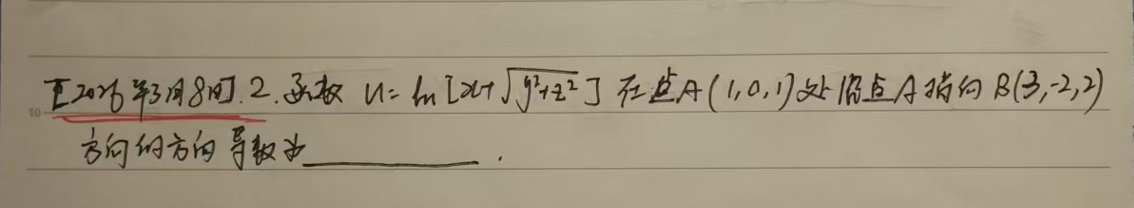 【2026年3月8日】. 2. 函数 u = ln [x+√(y²+z²)] 在点A(1,0,1)处沿点A指向B(3,-2,2)
10
方向的方向导数为________.